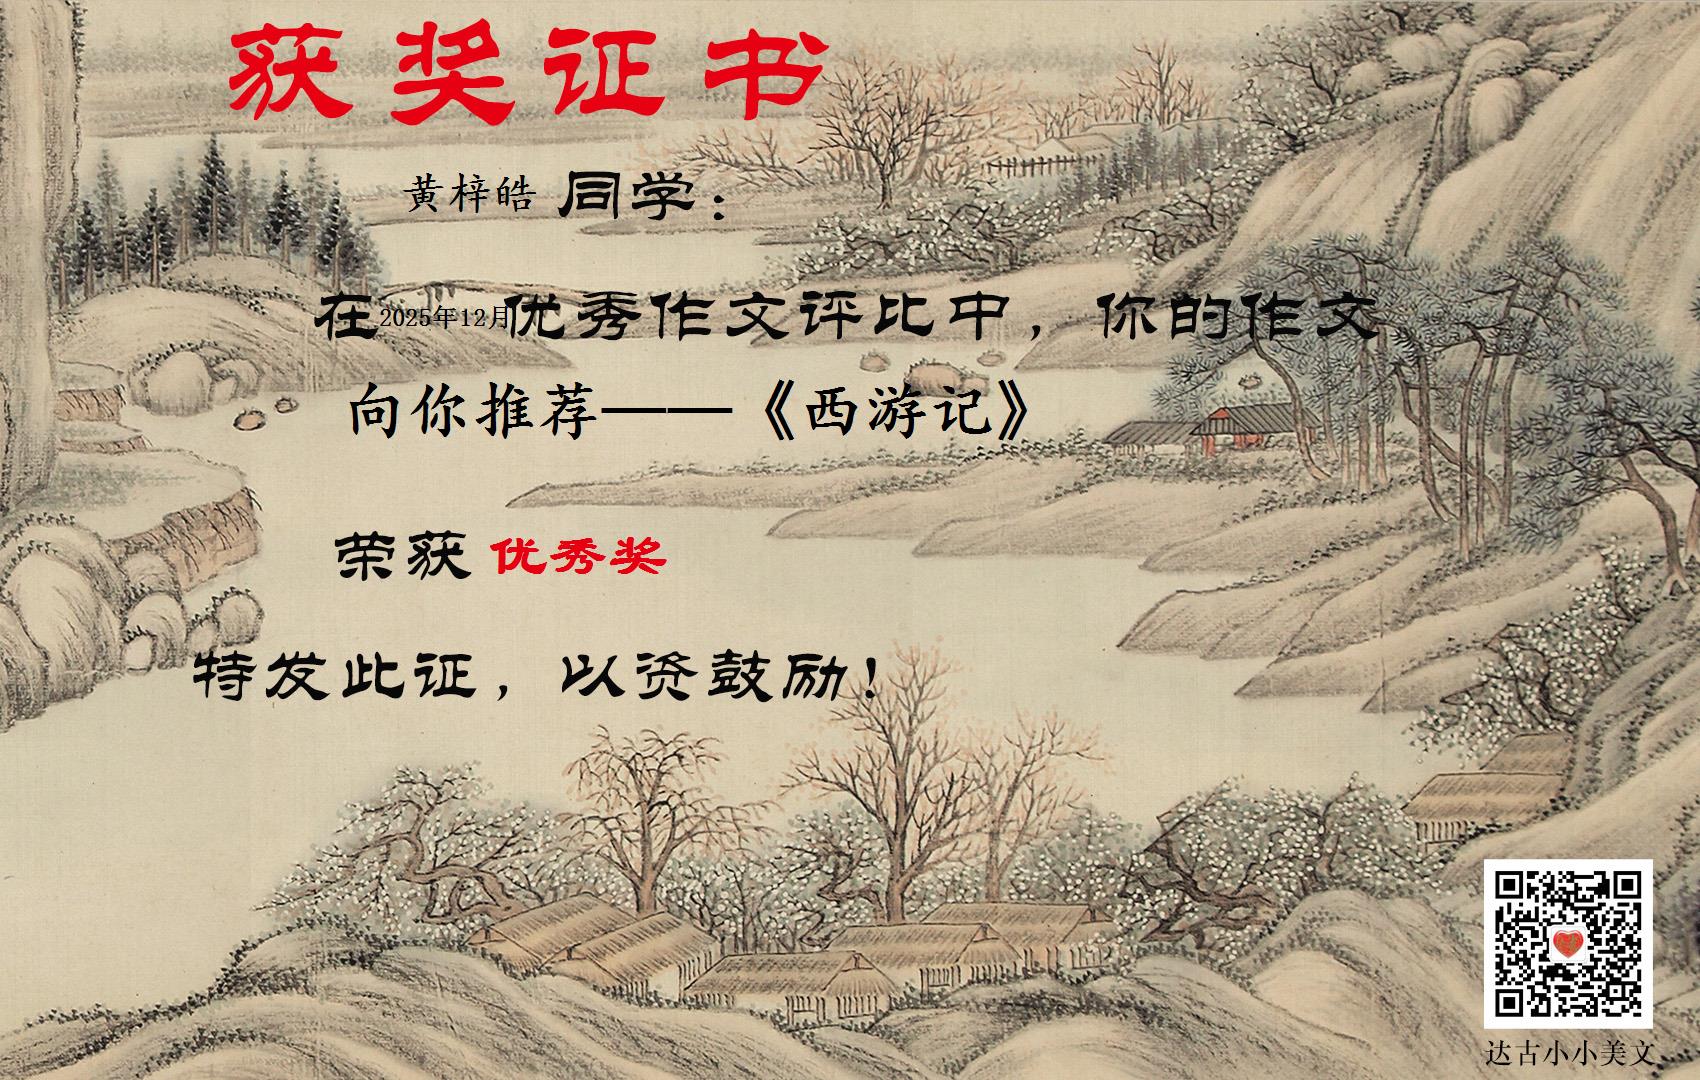 获奖证书
黄梓皓 同学：
在2025年12月优秀作文评比中，你的作文
向你推荐——《西游记》
荣获 优秀奖
特发此证，以资鼓励！
达古小小美文